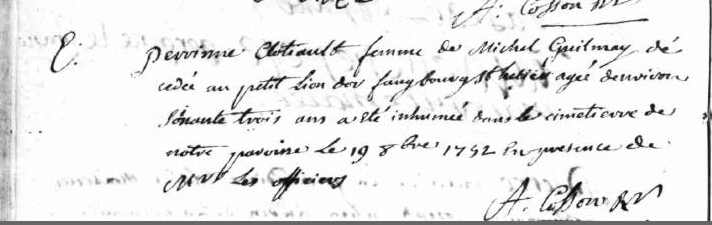 A: Cosson Rr
E. Perrinne Clotiault femme de Michel Guilmay dé
cedée au petit Lion dor faugbourg St helier agée denviron
soixante trois ans a été inhumée dans le cimetierre de
notre paroisse Le 19 8bre 1752 En presence de
Mrs Les officiers
A. Cosson Rr